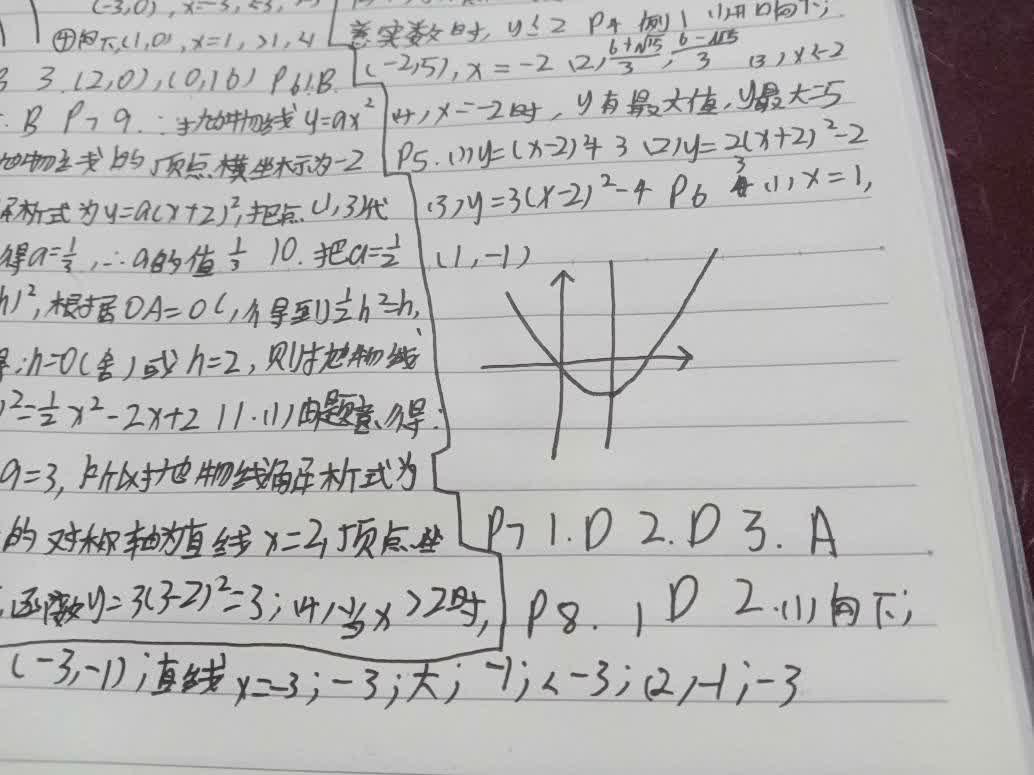 (-3,0), x=-3, ≤3,
④向下,(1,0), x=1, >1, <1
3 3.(2,0),(0,16) P6 1.B.
. B P7 9. ∵抛物线 y=ax²
抛物线的顶点横坐标为-2
解析式为y=a(x+2)²,把点(1,3)代
得a=1/3,∴a的值1/3 10.把a=1/2
h)²,根据OA=OC,得到1/2h²=h,
:h=0(舍)或h=2,则抛物线
)²=1/2x²-2x+2 11.(1)由题意得:
a=3,所以抛物线解析式为
的对称轴为直线x=2,顶点坐
函数y=3(3-2)²=3;(4)当x>2时,
实数时, y≤2 P4 例1 (1)开口向下;
(-2,5), x=-2 (2) (6+√15)/3, (6-√15)/3 (3) x<-2
(4) x=-2时, y有最大值, y最大=5
P5.(1)y=(x-2)²+3 (2)y=2(x+2)²-2
(3)y=3(x-2)²-4 P6 3 (1) x=1,
(1,-1)
P7 1.D 2.D 3.A
P8. 1 D 2.(1)向下;
(-3,-1);直线x=-3;-3;大;-1;<-3;(2)-1;-3